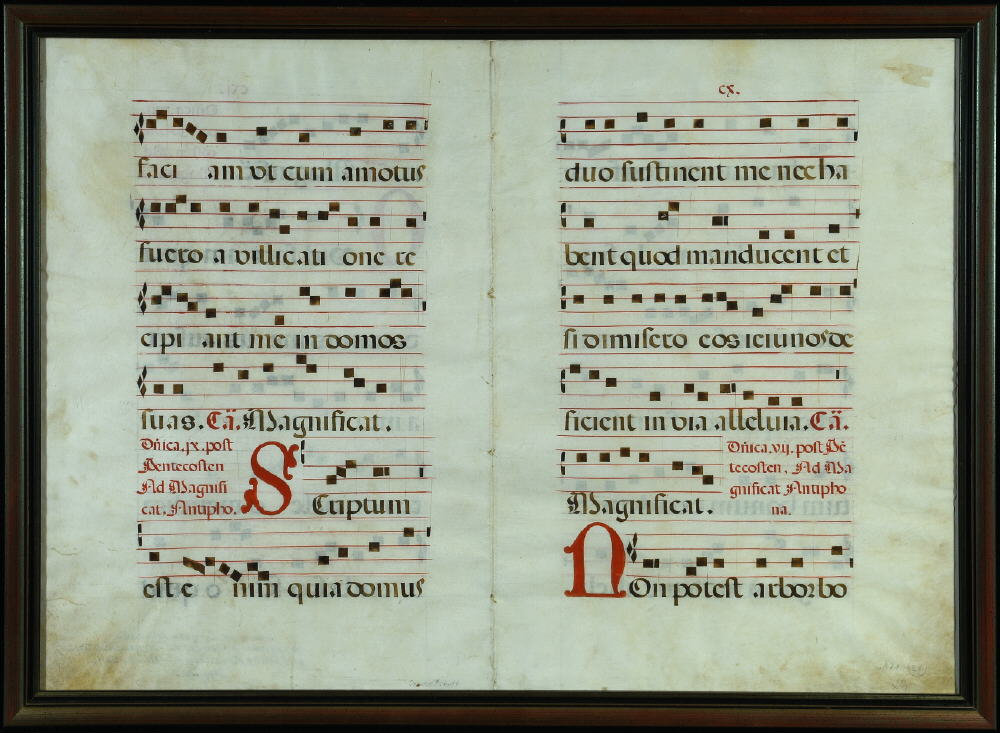 faci am vt cum amotus
fuero a villicati one re
cipi ant me in domos
suas. Cā. Magnificat.
Dñica. ix. post
Pentecosten
Ad Magnifi
cat. Antipho.
SCriptum
est e nim quia domus
cx.
duo sustinent me nec ha
bent quod manducent et
si dimisero eos ieiunos de
ficient in via alleluia. Cā.
Magnificat.
Dñica. vij. post Pē
tecosten. Ad Ma
gnificat Antipho
na.
NOn potest arbor bo